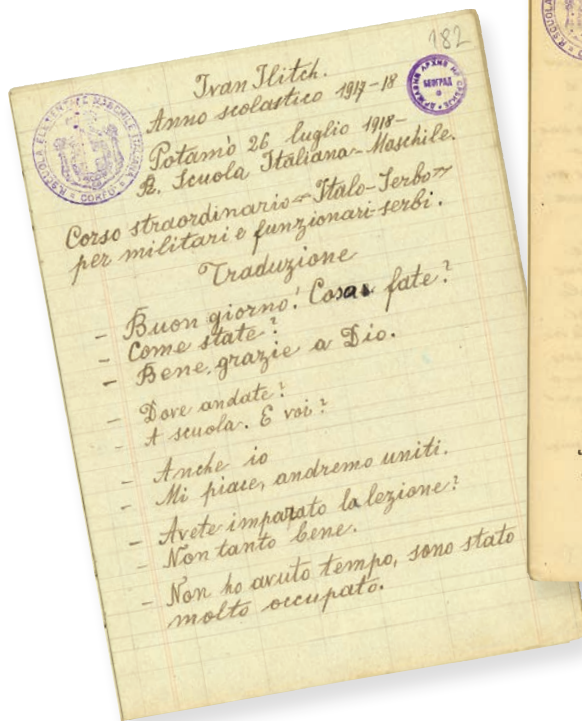 182
Ivan Ilitch.
Anno scolastico 1917-18
Potamò 26 luglio 1918-
R. Scuola Italiana-Maschile.
Corso straordinario Italo-Serbo
per militari e funzionari serbi.
Traduzione
- Buon giorno! Cosa fate?
- Come state?
- Bene, grazie a Dio.
- Dove andate?
- A scuola. E voi?
- Anche io
- Mi piace, andremo uniti.
- Avete imparato la lezione?
- Non tanto bene.
- Non ho avuto tempo, sono stato
molto occupato.
R. SCUOLA ELEMENTARE MASCHILE ITALIANA
CORFÙ
БЕОГРАД